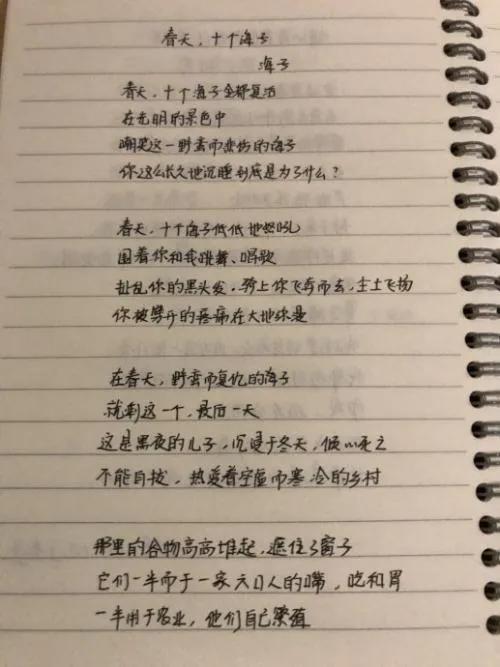 春天，十个海子
海子
春天，十个海子全部复活
在光明的景色中
嘲笑这一野蛮而悲伤的海子
你这么长久地沉睡到底是为了什么？
春天，十个海子低低地怒吼
围着你和我跳舞、唱歌
扯乱你的黑头发，骑上你飞奔而去，尘土飞扬
你被劈开的疼痛在大地弥漫
在春天，野蛮而复仇的海子
就剩这一个，最后一天
这是黑夜的儿子，沉浸于冬天，倾心死亡
不能自拔，热爱着空虚而寒冷的乡村
那里的谷物高高堆起，遮住了窗子
它们一半而于一家六口人的嘴，吃和胃
一半用于农业，他们自己繁殖